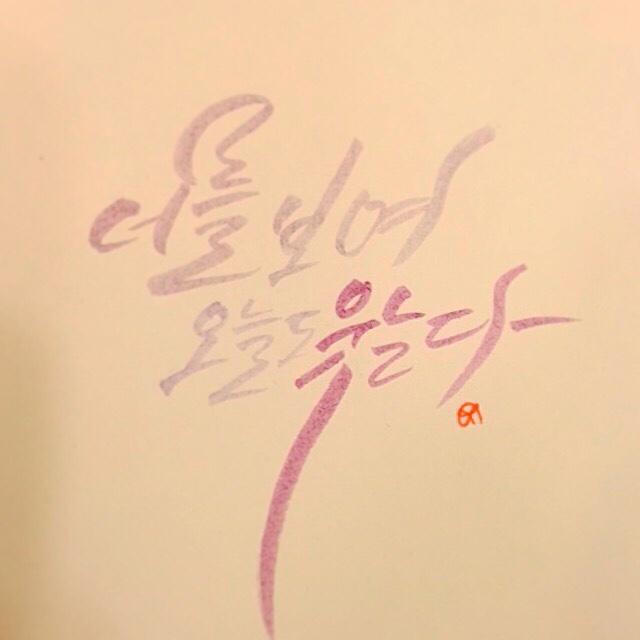 너를 보며
오늘도 웃는다